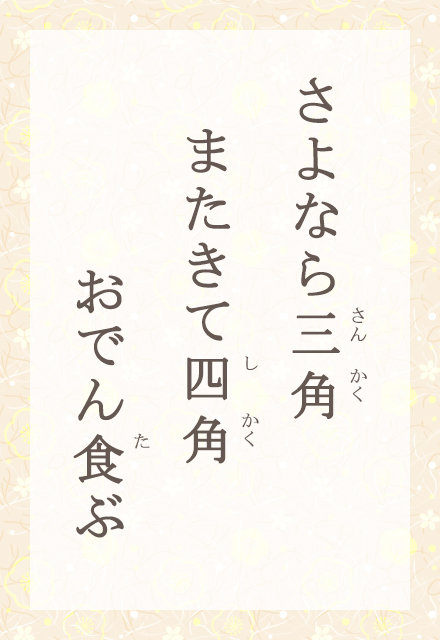 さよなら三角
さん かく
またきて四角
し かく
おでん食ぶ
た